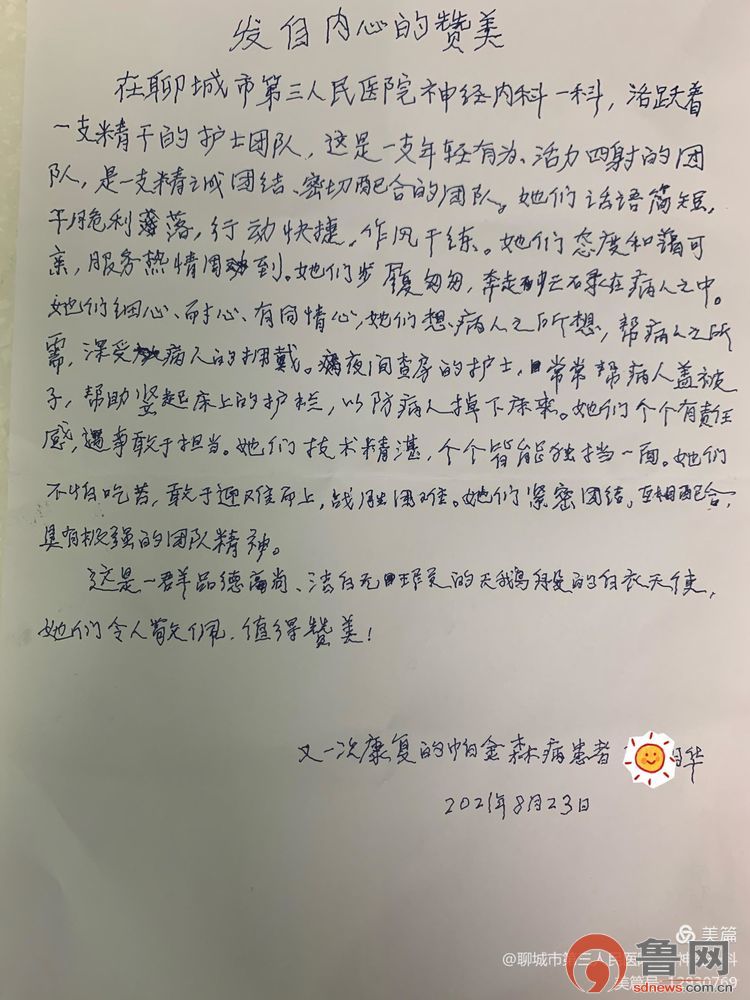 发自内心的赞美
在聊城市第三人民医院神经内科一科，活跃着
一支精干的护士团队，这是一支年轻有为、活力四射的团
队，是一支精诚团结、密切配合的团队。她们话语简短，
干脆利落，行动快捷，作风干练。她们态度和蔼可
亲，服务热情周到。她们步履匆匆，奔走在病人之中。
她们细心、耐心、有同情心，她们想病人之所想，帮病人之所
需，深受病人的拥戴。夜间查房的护士，常常帮病人盖被
子，帮助竖起床上的护栏，以防病人掉下床来。她们个个有责任
感，遇事敢于担当。她们技术精湛，个个皆能独挡一面。她们
不怕吃苦，敢于迎难而上，战胜困难。她们紧密团结，互相配合，
具有极强的团队精神。
这是一群品德高尚、洁白无瑕的天鹅的白衣天使，
她们令人敬佩，值得赞美！
又一次康复的帕金森病患者 华
2021年8月23日
美篇
@聊城市第三人民医院神 科
美篇号:12930769
鲁网
sdnews.com.cn